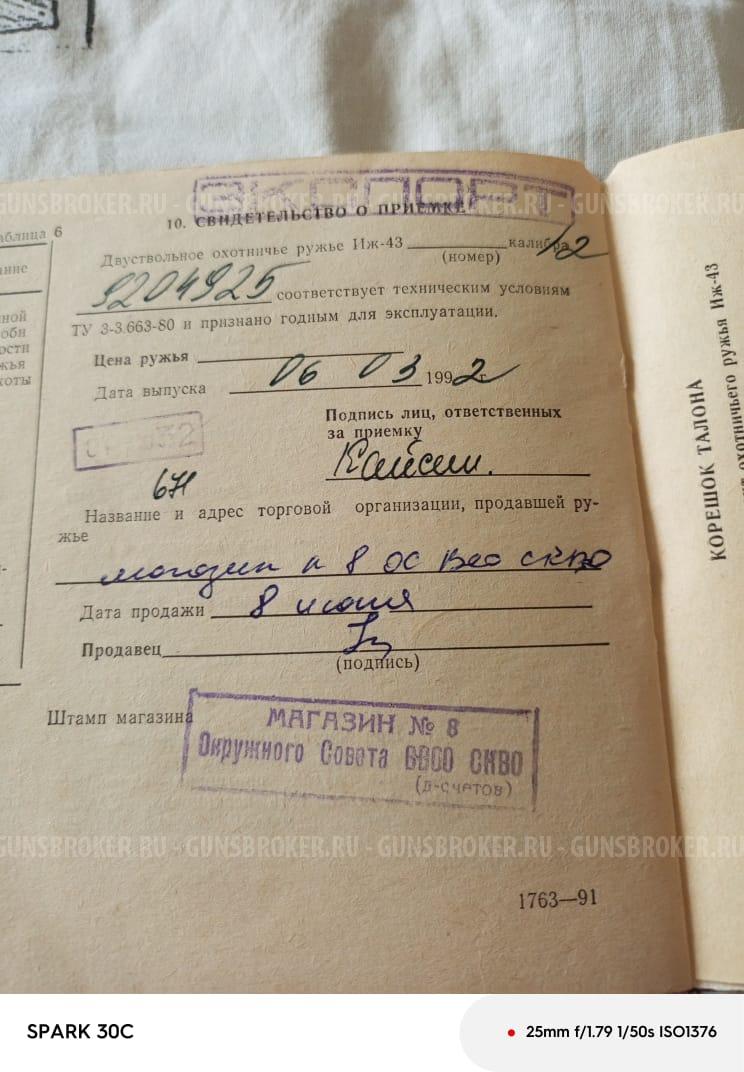 ЭКСПОРТ
GUNSBROKER.RU - GUNSBROKER.RU - GUNSBROKER.RU - GUNSBROKER.RU
10. СВИДЕТЕЛЬСТВО О ПРИЕМКЕ
аблица 6
Двуствольное охотничье ружье Иж-43 калибра 12
(номер)
9204925 соответствует техническим условиям
ТУ 3-3.663-80 и признано годным для эксплуатации.
Цена ружья
Дата выпуска 06 03 1992 г.
Подпись лиц, ответственных
за приемку
Название и адрес торговой организации, продавшей ру-
жье
магазин н 8 ОС
Дата продажи 8 июля
Продавец
(подпись)
Штамп магазина
МАГАЗИН № 8
Окружного Совета ВВСО СКВО
GUNSBROKER.RU - GUNSBROKER.RU - GUNSBROKER.RU - GUNSBROKER.RU
1763—91
ание
ной
оби
ости
жья
хоты
КОРЕШОК ТАЛОНА
охотничьего ружья Иж-43
SPARK 30C
25mm f/1.79 1/50s ISO1376